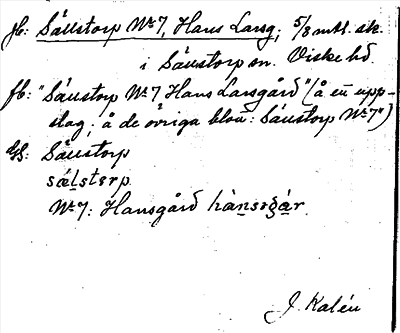 Jb: Sällstorp Nr 7, Hans Larsg; 5/8 mtl. sk.
i Sällstorp sn. Viske hd.
fb: "Sällstorp Nr 7 Hans Larsgård" (å en upp-
slag; å de övriga blott: Sällstorp Nr 7")
Us: Sällstorp
sǽlsterp.
Nr 7: Hansgård hànsegár.
J. Kalén